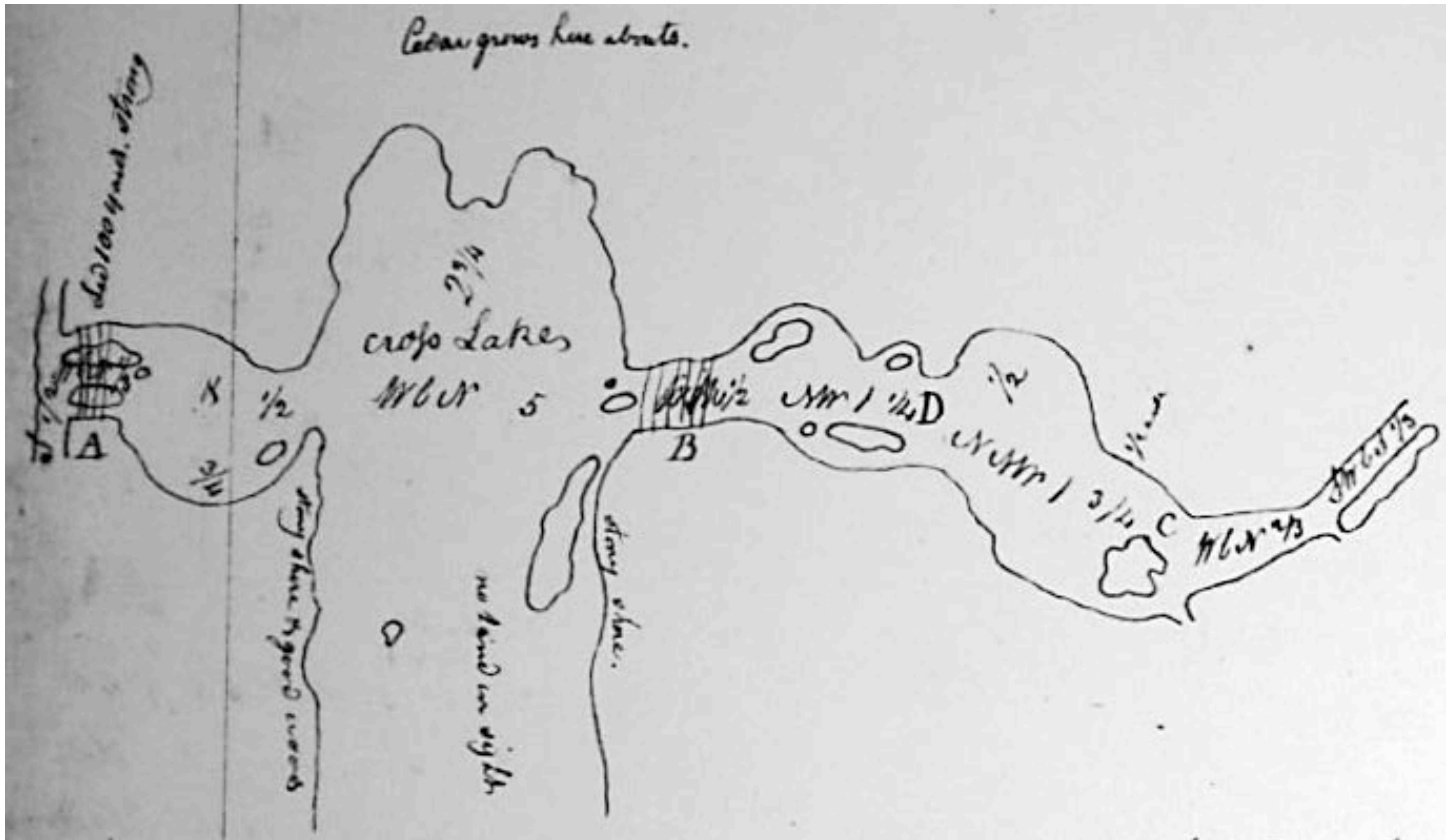 Cedar grows here abouts.
Led 100 yards. strong
A
3/4
1/2
2 3/4
cross Lakes
WbN 5
stony shore & good woods
no land in sight
stony shore.
B
1/2
NW 1 1/4
D
1/2
NNW 1 3/4
C
WbN 2/3